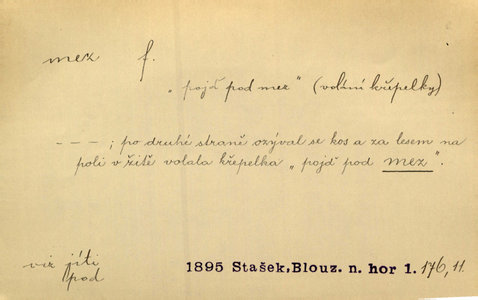 mez f.
„pojď pod mez" (volání křepelky)
- - - ; po druhé straně ozýval se kos a za lesem na
poli v žitě volala křepelka „pojď pod mez".
viz jíti
pod
1895 Stašek, Blouz. n. hor 1. 176, 11.